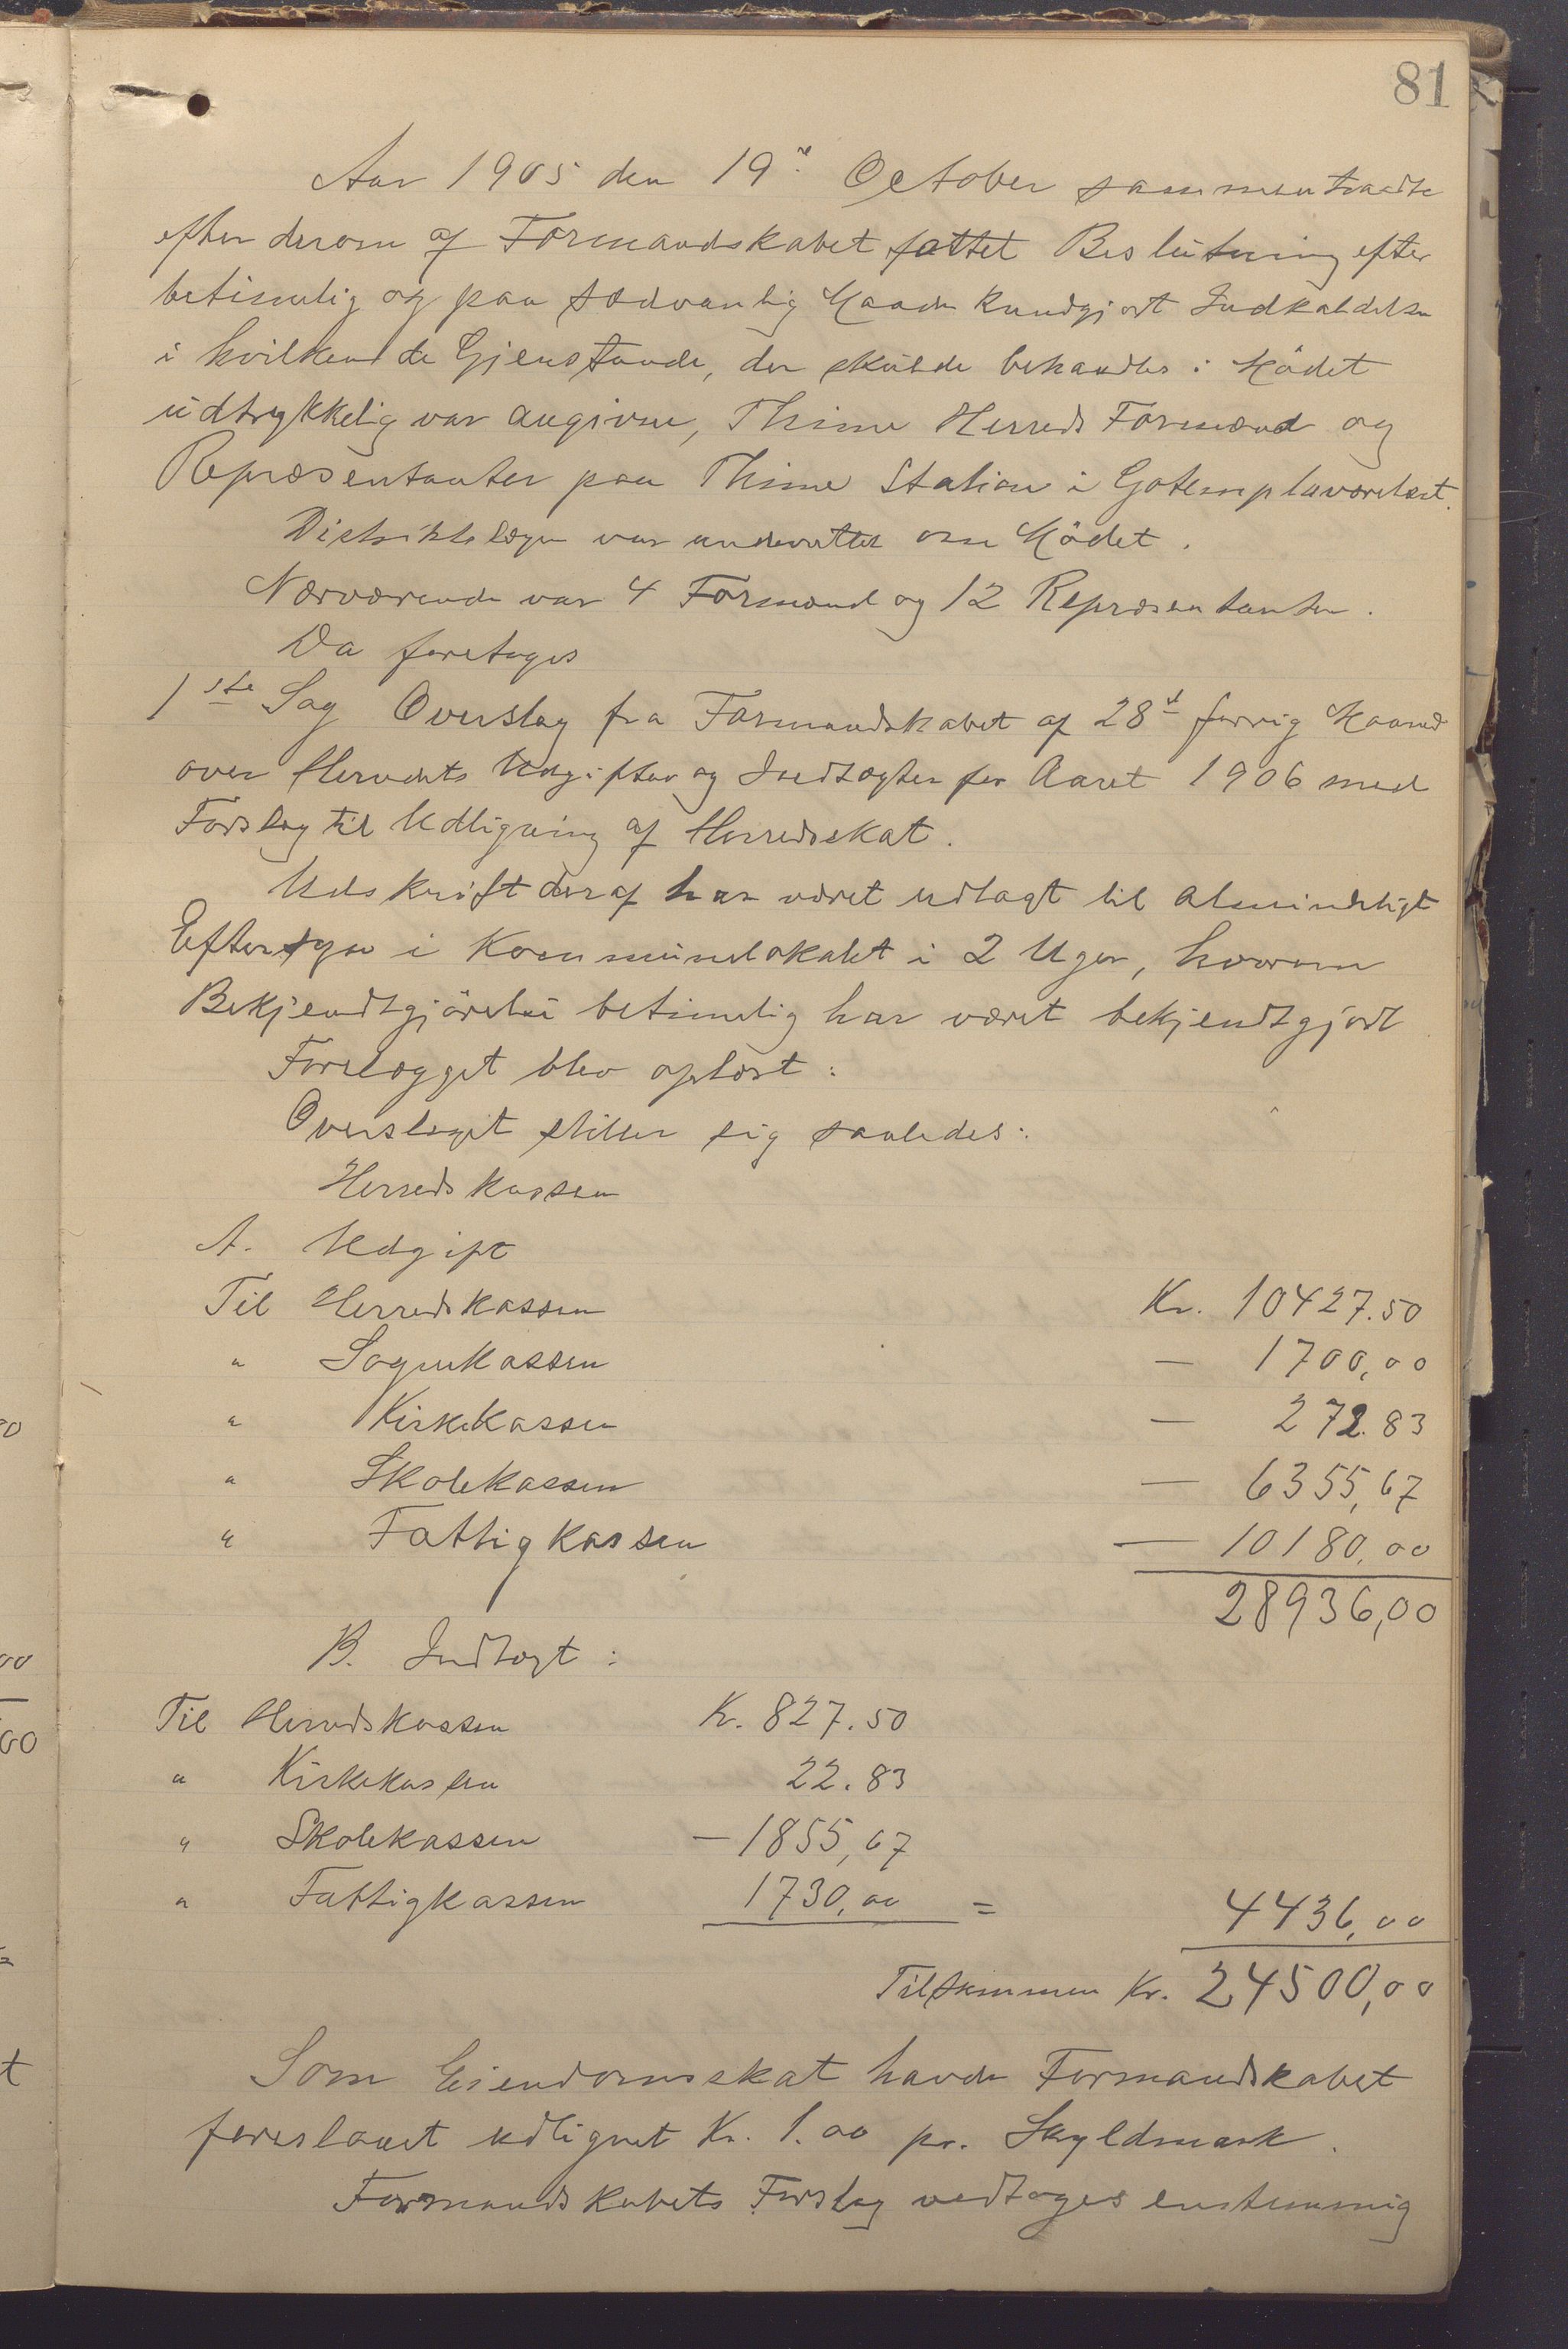 81
Aar 1905 den 19de October sammentraadte
efter derom af Formandskabet fattet Beslutning efter
betimelig og paa sædvanlig Maade kundgjort Indkaldelse
i hvilken de Gjenstande, der skulde behandles i Mödet
udtrykkelig var angivne, Thime Herreds Formænd og
Repræsentanter paa Thime Station i Gotemplaværelset.
Distriktslægen var underrettet om Mödet.
Nærværende var 4 Formænd og 12 Repræsentanter.
Da foretages
1ste Sag Overslag fra Formandskabet af 28d forrig Maaned
over Herredets Udgifter og Indtægter for Aaret 1906 med
Forslag til Udligning af Herredsskat.
Udskrift deraf har været udlagt til almindeligt
Eftersyn i Kommunelokalet i 2 Uger, hvorom
Bekjendtgjörelse betimelig har været bekjendtgjort
Forelægget blev oplæst:
Overslaget stiller sig saaledes:
Herredskassen
A. Udgift
Til Herredskassen Kr. 10427.50
" Sognekassen — 1700,00
" Kirkekassen — 272.83
" Skolekassen — 6355,67
" Fattigkassen — 10180,00
28936,00
B. Indtægt:
Til Herredskassen Kr. 827.50
" Kirkekassen 22.83
" Skolekassen — 1855,67
" Fattigkassen 1730,00 = 4436,00
Tilsammen Kr. 24500,00
Som Eiendomsskat havde Formandskabet
foreslaaet udlignet Kr. 1.00 pr. Skyldmark.
Formandskabets Forslag vedtages enstemmig